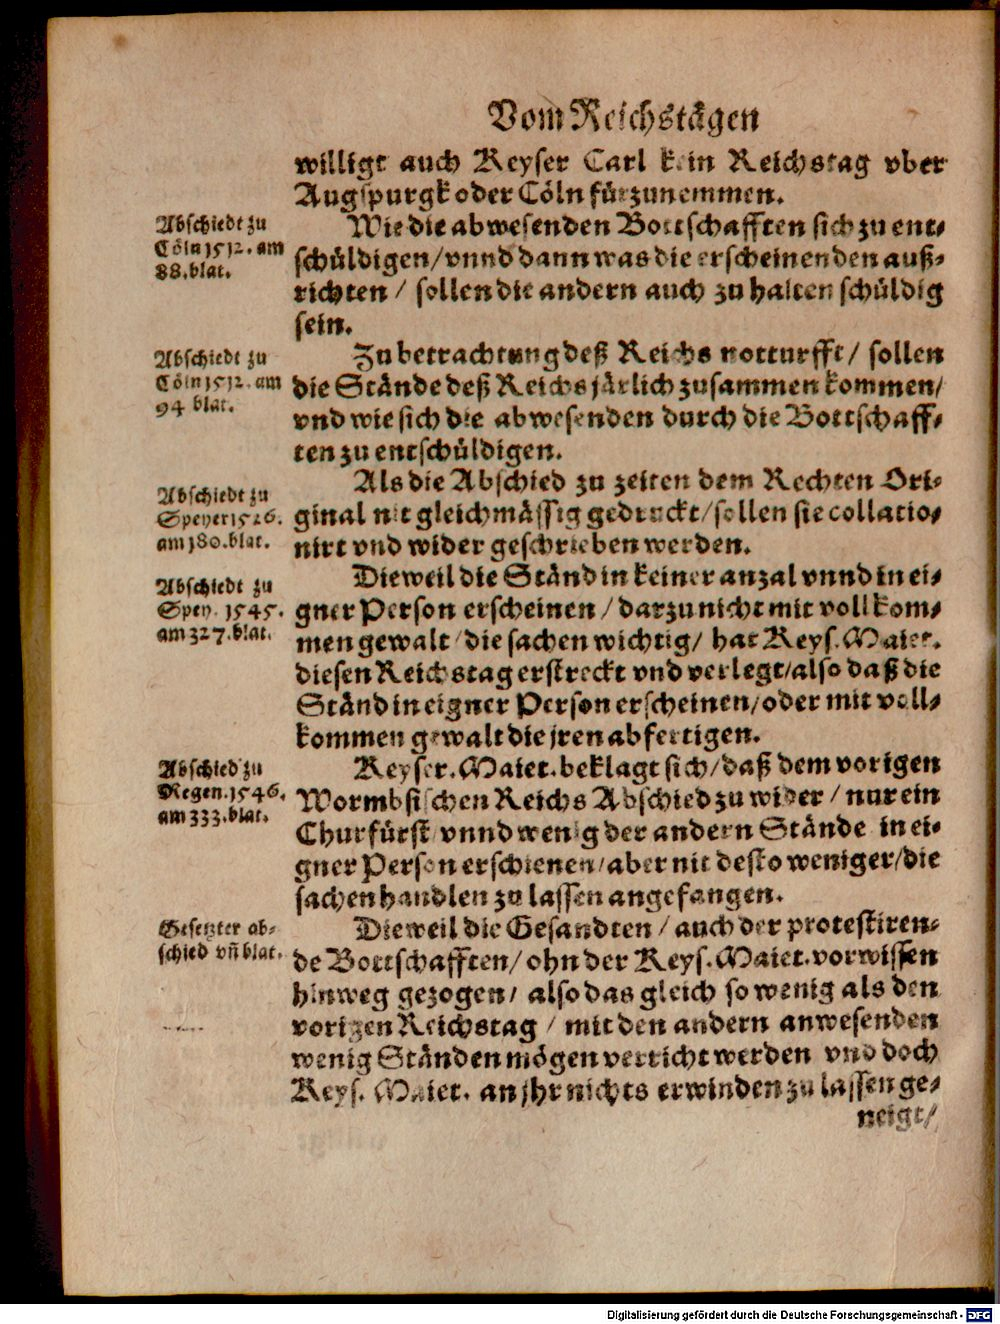 Vom Reichstägen
willigt auch Keyser Carl kein Reichstag vber
Augspurgk oder Cöln fürzunemmen.
Abschiedt zu
Cöln 1512. am
88. blat.
Wie die abwesenden Bottschafften sich zu ent-
schüldigen / vnnd dann was die erscheinenden auß-
richten / sollen die andern auch zu halten schüldig
sein.
Abschiedt zu
Cöln 1512. am
94 blat.
Zu betrachtung deß Reichs notturfft / sollen
die Stände deß Reichs järlich zusammen kommen /
vnd wie sich die abwesenden durch die Bottschaff-
ten zu entschüldigen.
Abschiedt zu
Speyer 1526.
am 180. blat.
Als die Abschied zu zeiten dem Rechten Ori-
ginal nit gleichmässig gedruckt / sollen sie collatio-
nirt vnd wider geschrieben werden.
Abschiedt zu
Spey. 1545.
am 327. blat.
Dieweil die Ständ in keiner anzal vnnd in ei-
gner Person erscheinen / darzu nicht mit vollkom-
men gewalt / die sachen wichtig / hat Keys. Maiet.
diesen Reichstag erstreckt vnd verlegt / also daß die
Ständ in eigner Person erscheinen / oder mit voll-
kommen gewalt die jren abfertigen.
Abschied zu
Regen. 1546.
am 333. blat.
Keyser. Maiet. beklagt sich / daß dem vorigen
Wormbsischen Reichs Abschied zu wider / nur ein
Churfürst vnnd wenig der andern Stände in ei-
gner Person erschienen / aber nit desto weniger / die
sachen handlen zu lassen angefangen.
Gesetzter ab-
schied vñ blat.
Dieweil die Gesandten / auch der protestiren-
de Bottschafften / ohn der Keys. Maiet. vorwissen
hinweg gezogen / also das gleich so wenig als den
vorigen Reichstag / mit den andern anwesenden
wenig Ständen mögen verricht werden vnd doch
Keys. Maiet. an jhr nichts erwinden zu lassen ge-
neigt /
Digitalisierung gefördert durch die Deutsche Forschungsgemeinschaft - DFG